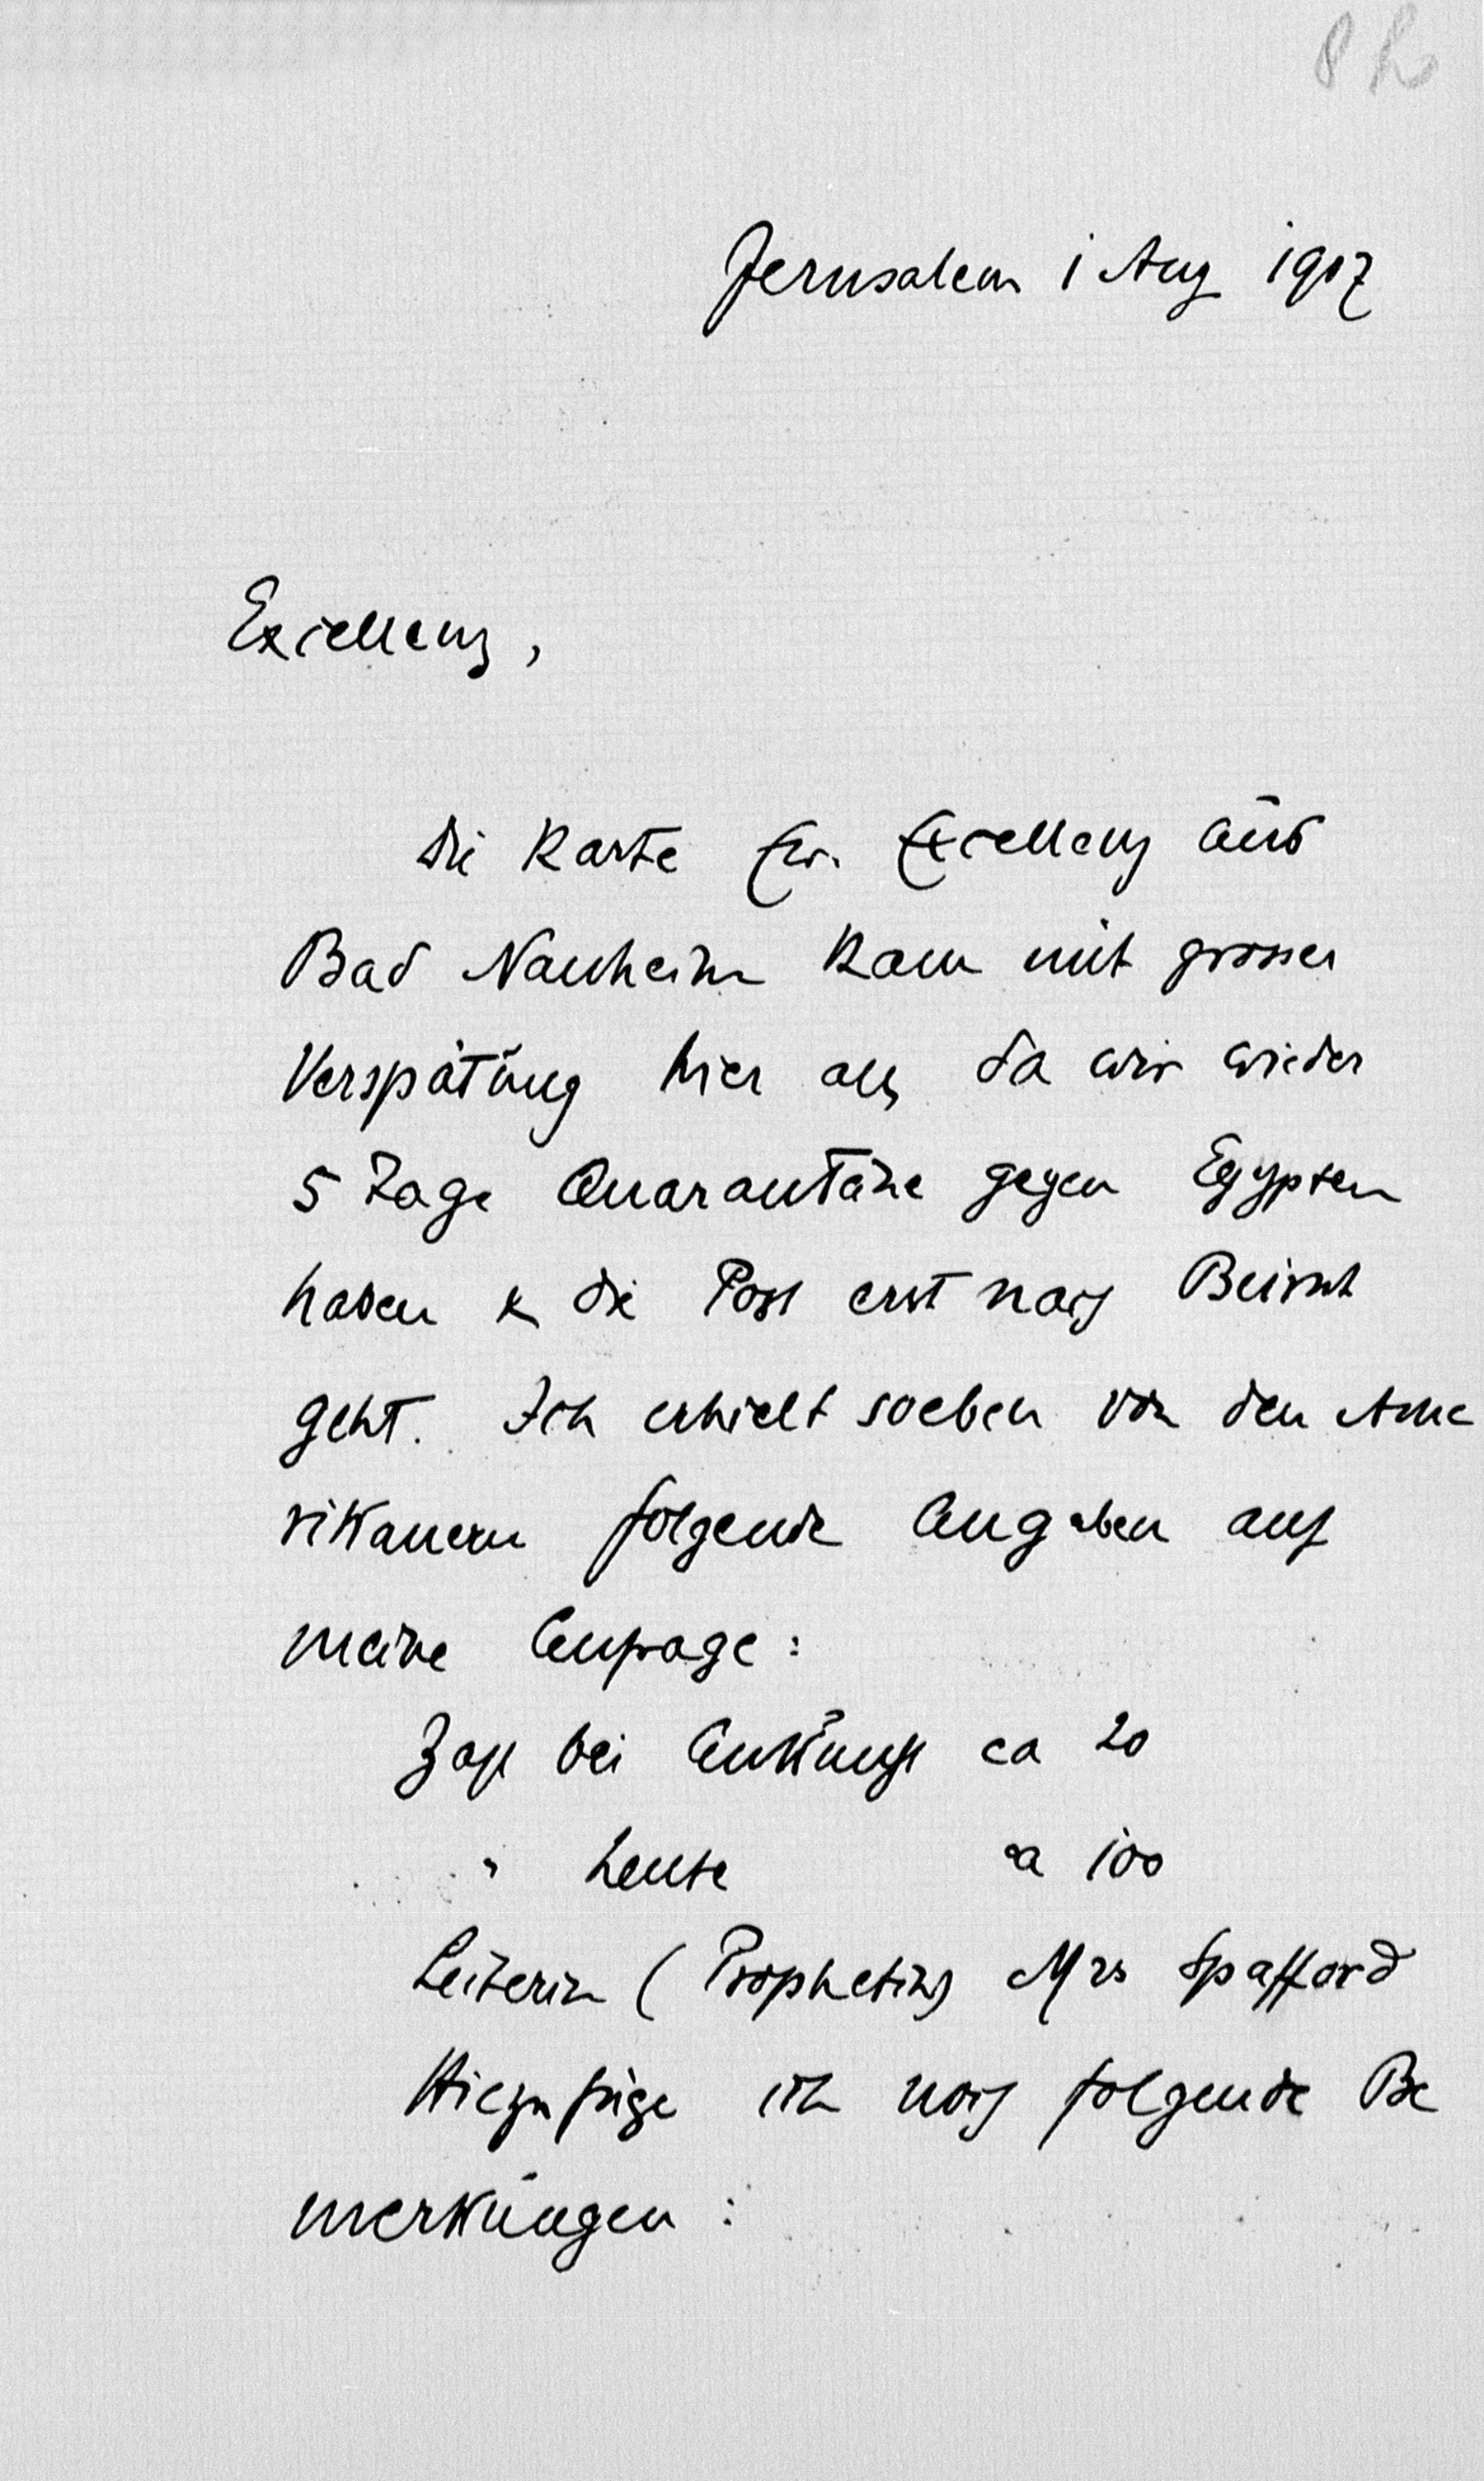 Jerusalem 1 Aug 1907
Excellenz,
die Karte Ew. Excellenz aus
Bad Nauheim kam mit grosser
Verspätung hier an, da wir wieder
5 Tage Quarantäne gegen Egypten
haben & die Post erst nach Beirut
geht. Ich erhielt soeben von den Ame
rikanern folgende Angaben auf
meine Anfrage:
Zahl bei Ankunft ca 20
" heute ca 100
Leiterin (Prophetin) Mrs Spafford
Hiezu füge ich noch folgende Be
merkungen: